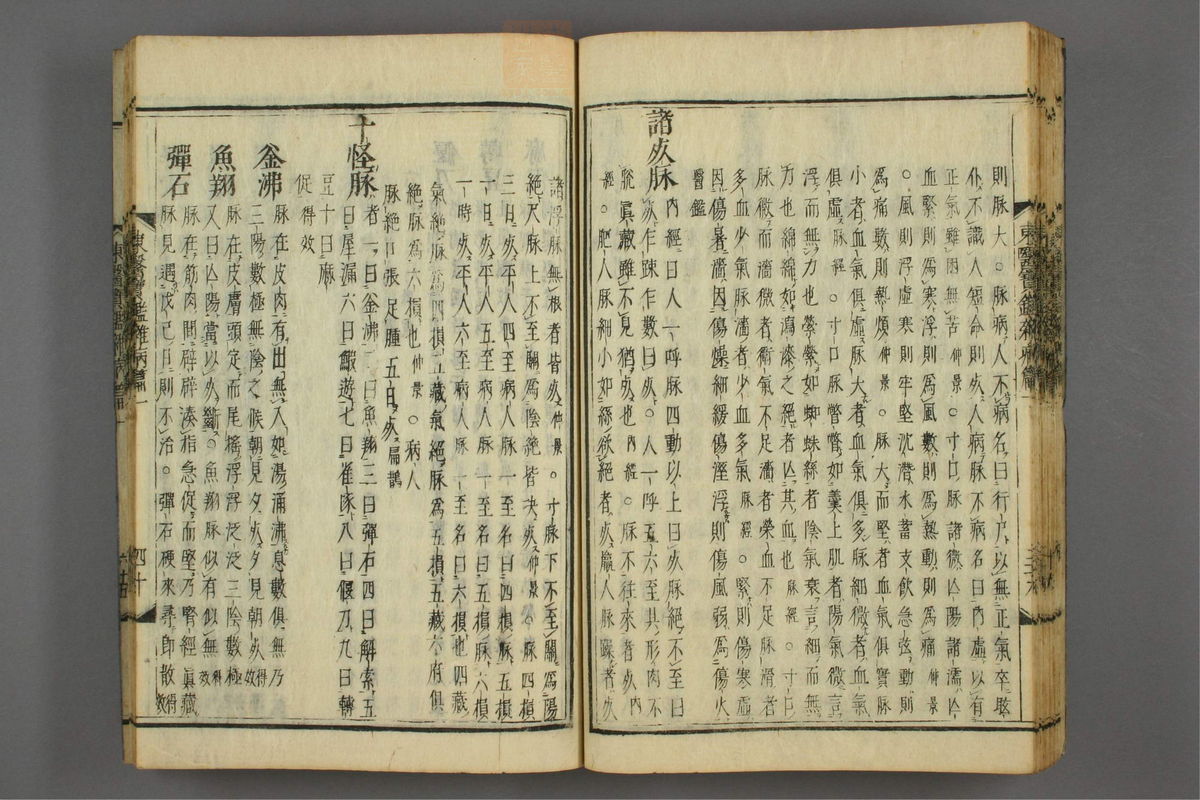 則脉大。脉病人不病名曰行尸以無正氣卒眩
仆不識人短命則死人病脉不病名曰內虛以有
正氣雖困無苦仲景。寸口脉諸微亡陽諸濡亡
血緊則爲寒浮則爲風數則爲熱動則爲痛仲景
。風則浮虛寒則牢堅沉潛水蓄支飮急弦動則
爲痛數則熱煩仲景。脉大而堅者血氣俱實脉
小者血氣俱虛脉大者血氣俱多脉細微者血氣
俱虛脉經。寸口脉瞥瞥如羹上肥者陽氣微言
浮而無力也縈縈如蜘蛛絲者陰氣衰言細而無
力也綿綿如瀉漆之絕者亡其血也脉經。寸口
脉微而濇微者衛氣不足濇者榮血不足脉滑者
多血少氣脉濇者少血多氣脉經。緊則傷寒虛
因傷暑濇因傷燥細緩傷溼浮則傷風弱爲傷火
醫鑑
諸死脉 內經曰人一呼脉四動以上曰死脉絕不至曰
死乍踈乍數曰死。人一呼五六至其形肉不
脫眞藏雖不見猶死也內經。脉不往來者死內
經。肥人脉細小如絲欲絕者死羸人脉躁者死
諸浮脉無根者皆死仲景。寸脉下不至關爲陽
絕尺脉上不至關爲陰絕皆決死仲景。脉四損
三日死平人四至病人脉一至名曰四損脉五損
一日死平人五至病人脉一至名曰五損脉六損
一時死平人六至病人脉一至名曰六損也四藏
氣絕脉爲四損五藏氣絕脉爲五損五藏六府俱
絕脉爲六損也仲景。病人
脉絕口張足腫五日死扁鵲
十怪脉 者一曰釜沸二曰魚翔三曰彈石四曰解索五
曰屋漏六曰蝦遊七曰雀啄八曰偃刀九曰轉
豆十曰麻
促得效
釜沸 脉在皮肉有出無入如湯涌沸息數俱無乃
三陽數極無陰之候朝見夕死夕見朝死得效
魚翔 脉在皮膚頭定而尾搖浮浮泛泛三陰數極
又曰亡陽當以死斷。魚翔脉似有似無得效
彈石 脉在筋肉間辟辟湊指急促而堅乃腎經眞藏
脉見遇戊己日則不治。彈石硬來尋卽散得效
東醫寶鑑雜病篇一
四十